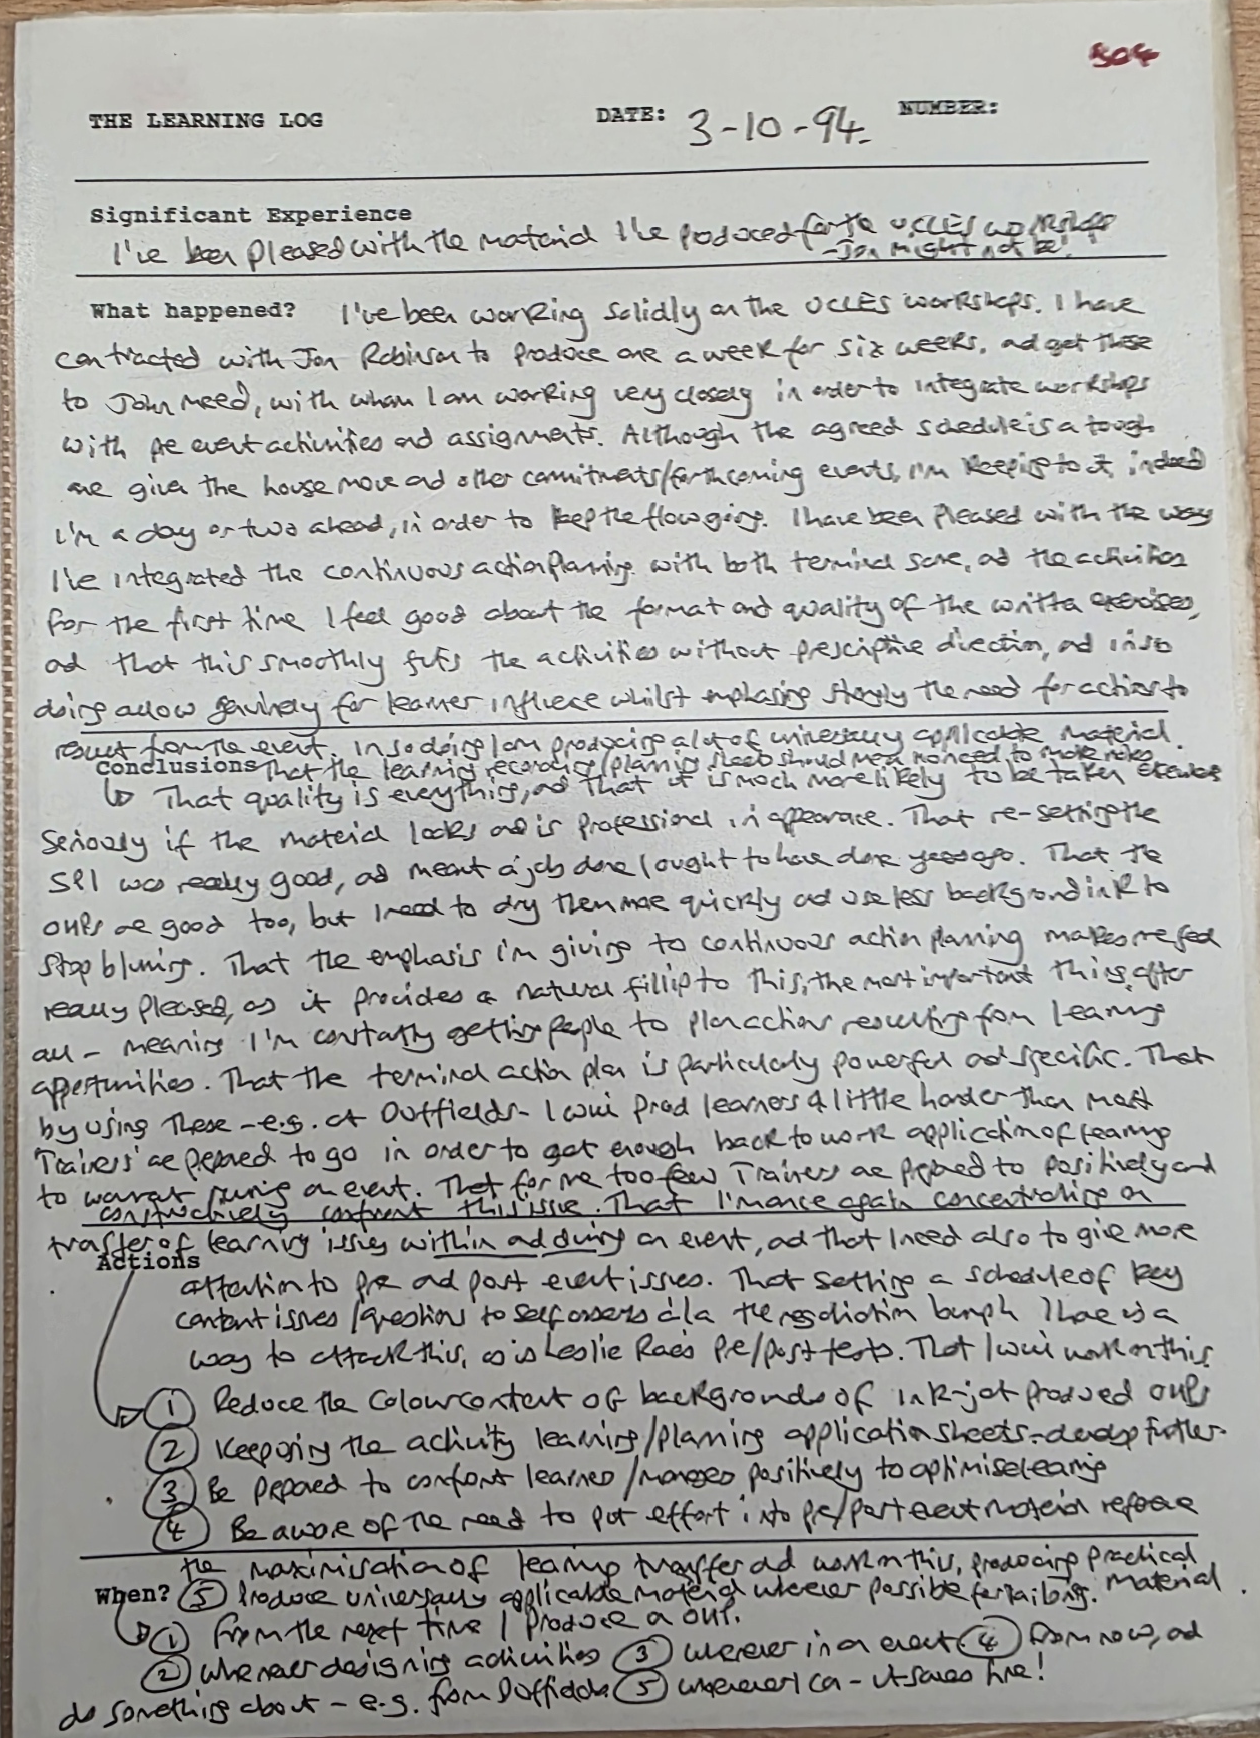 304
THE LEARNING LOG DATE: 3-10-94. NUMBER:
Significant Experience
I've been pleased with the material I've produced for the UCLES workshops
- Jon might not be!
What happened? I've been working solidly on the UCLES workshops. I have
contracted with Jon Robinson to produce one a week for six weeks, and get these
to John Meed, with whom I am working very closely in order to integrate workshops
with pre event activities and assignments. Although the agreed schedule is a tough
one given the house move and other commitments/forthcoming events, I'm keeping to it, indeed
I'm a day or two ahead, in order to keep the flow going. I have been pleased with the way
I've integrated the continuous action planning with both terminal same, and the activities
for the first time I feel good about the format and quality of the written exercises,
and that this smoothly fits the activities without prescriptive direction, and in so
doing allow genuinely for learner influence whilst emphasing strongly the need for actions to
result from the event. In so doing I am producing a lot of universally applicable material.
Conclusions That the learning recording/planning sheets should mean no need to make notes
That quality is everything, and that it is much more likely to be taken
seriously if the material looks and is professional in appearance. That re-setting the
SPI was really good, and meant a job done I ought to have done years ago. That the
OHPs are good too, but I need to dry them more quickly and use less background ink to
stop blurring. That the emphasis I'm giving to continuous action planning makes me feel
really pleased, as it provides a natural fillip to this, the most important thing, after
all - meaning I'm constantly getting people to plan actions resulting from learning
opportunities. That the terminal action plan is particularly powerful and specific. That
by using these - e.g. at Duffields - I will prod learners a little harder than most
'Trainers' are prepared to go in order to get enough back to work application of learning
to warrant running an event. That for me too few Trainers are prepared to positively and
constructively confront this issue. That I'm once again concentrating on
transfer of learning issues within and during an event, and that I need also to give more
Actions
attention to pre and post event issues. That setting a schedule of key
content issues/questions to self assess à la the negotiation bumph I have is a
way to attack this, as is Leslie Rae's pre/post tests. That I will work on this.
① Reduce the colour content of backgrounds of ink-jet produced OHPs
② Keep using the activity learning/planning application sheets - develop further.
③ Be prepared to confront learners/managers positively to optimise learning
④ Be aware of the need to put effort into pre/post event material
the maximisation of learning transfer and work on this, producing practical
When? ⑤ Produce universally applicable material wherever possible for tailoring. material.
① From the next time I produce a OHP.
② whenever designing activities ③ whenever in an event ④ From now, and
do something about - e.g. from Duffields ⑤ whenever I can - it saves time!